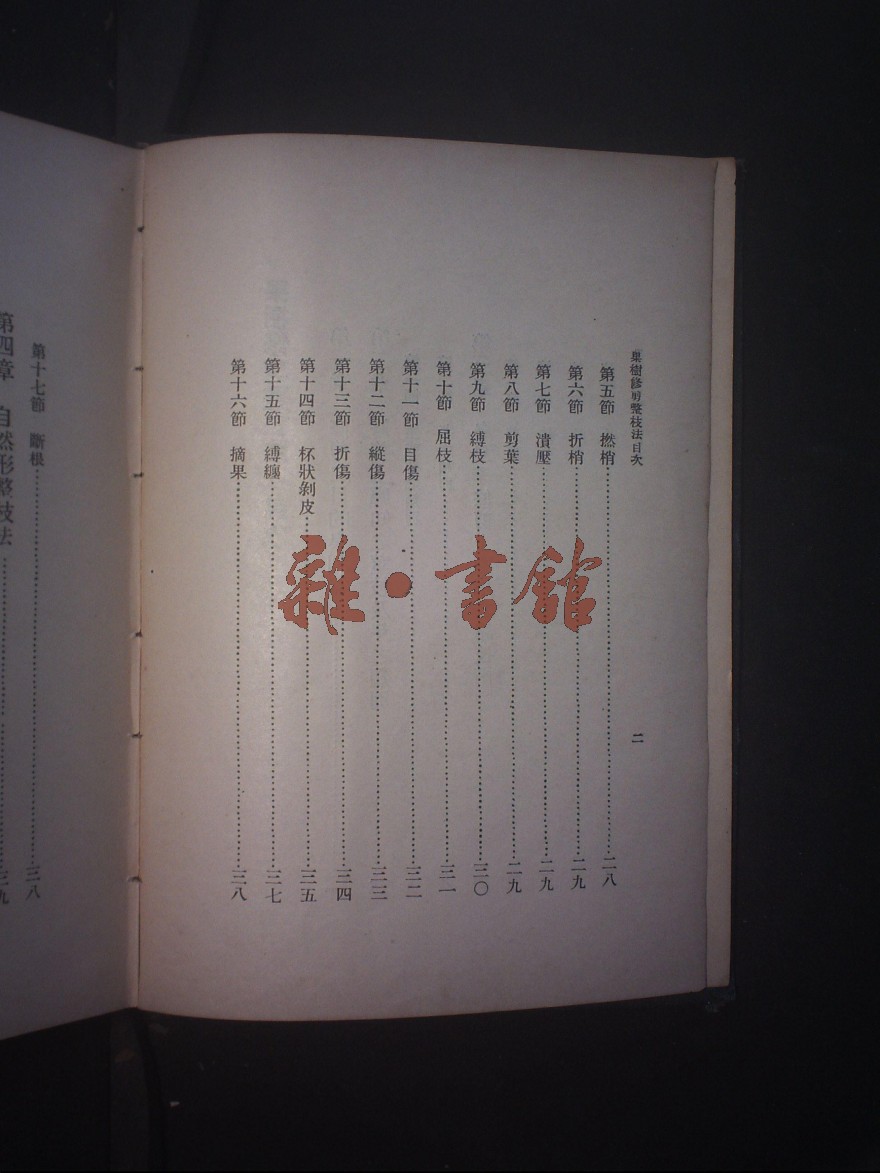 果樹修剪整枝法目次
二
第五節 撚梢……二八
第六節 折梢……二九
第七節 潰壓……二九
第八節 剪葉……二九
第九節 縛枝……三〇
第十節 屈枝……三一
第十一節 目傷……三二
第十二節 縱傷……三三
第十三節 折傷……三四
第十四節 杯狀剝皮……三五
第十五節 縛纏……三七
第十六節 摘果……三八
第十七節 斷根……三八
第四章 自然形整枝法……三九
雜·書館